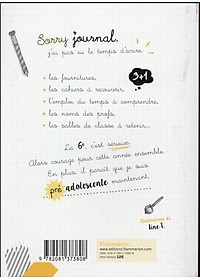 Sorry journal,
j'ai pas eu le temps d'écrire.
3+1
• les fournitures,
• les cahiers à recouvrir,
• l'emploi du temps à comprendre,
• les noms des profs,
• les salles de classe à retenir...
La 6e, c'est sérieux.
Alors courage pour cette année ensemble.
En plus, il paraît que je suis
pré adolescente maintenant.
Illustrations de
Line
Flammarion
www.editions.flammarion.com
12€
9 782081 375808